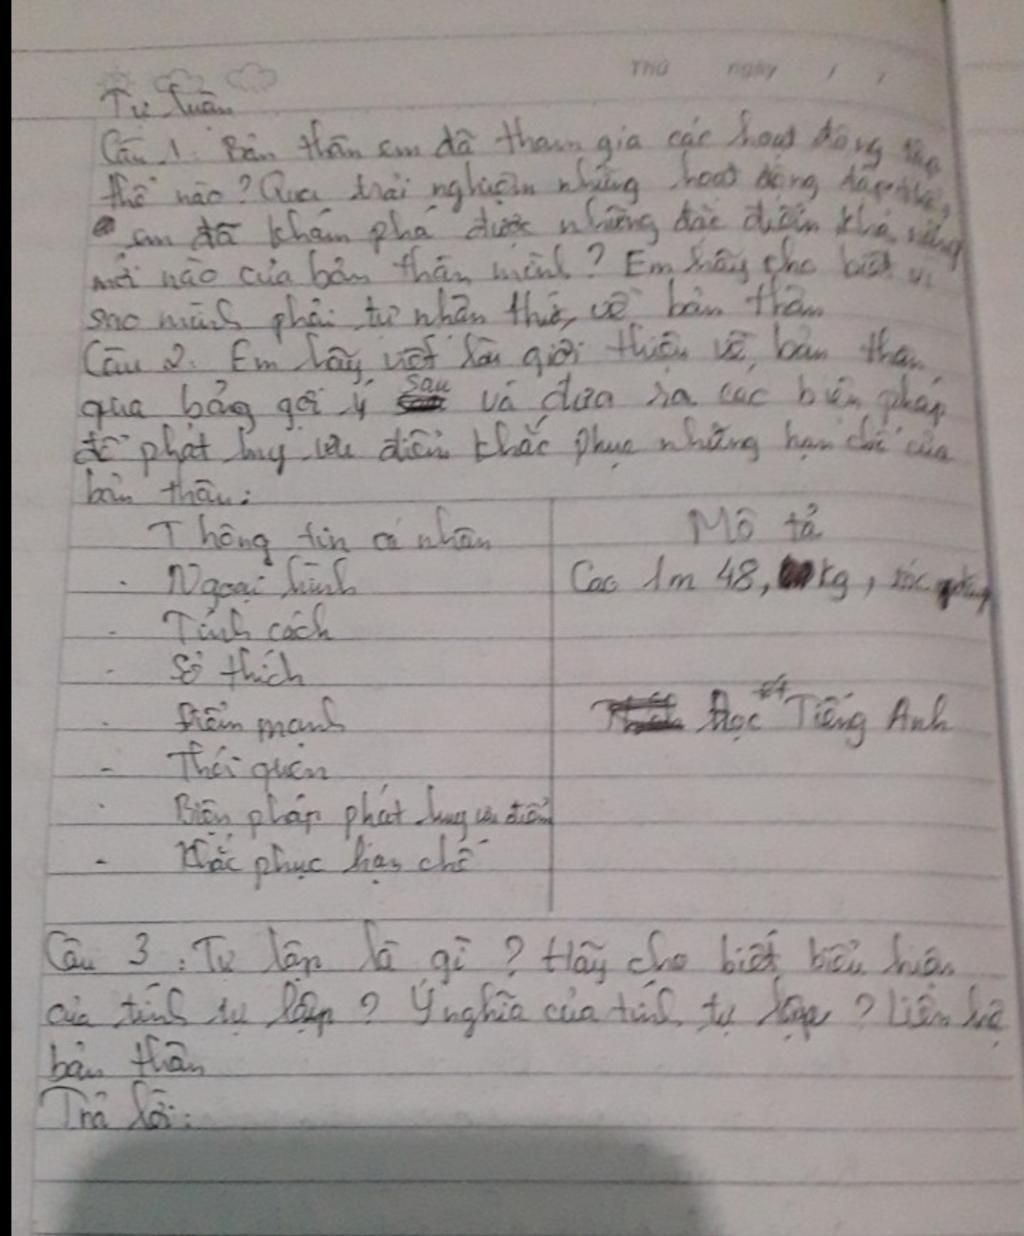 Thứ ngày / /
Tự luận
Câu 1: Bản thân em đã tham gia các hoạt động
thể nào? Qua trải nghiệm những hoạt động tập thể,
em đã khám phá được những đặc điểm khả năng
mới nào của bản thân mình? Em hãy cho biết vì
sao mình phải tự nhận thức về bản thân
Câu 2. Em hãy viết lời giới thiệu về bản thân
qua bảng gợi ý sau và đưa ra các biện pháp
để phát huy ưu điểm khắc phục những hạn chế của
bản thân:
Thông tin cá nhân Mô tả
- Ngoại hình Cao 1m 48, kg, tóc
- Tính cách
- Sở thích
- Điểm mạnh Học Tiếng Anh
- Thói quen
- Biện pháp phát huy ưu điểm
- Khắc phục hạn chế
Câu 3: Tự lập là gì? Hãy cho biết biểu hiện
của tính tự lập? Ý nghĩa của tính tự lập? Liên hệ
bản thân
Trả lời: